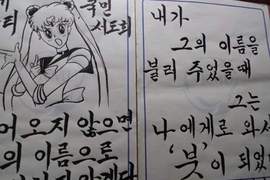 국민
어 오지 않으면
의 이름으로
내가
그의 이름을
불러 주었을때
그는
나에게로 와서
'붓'이 되었